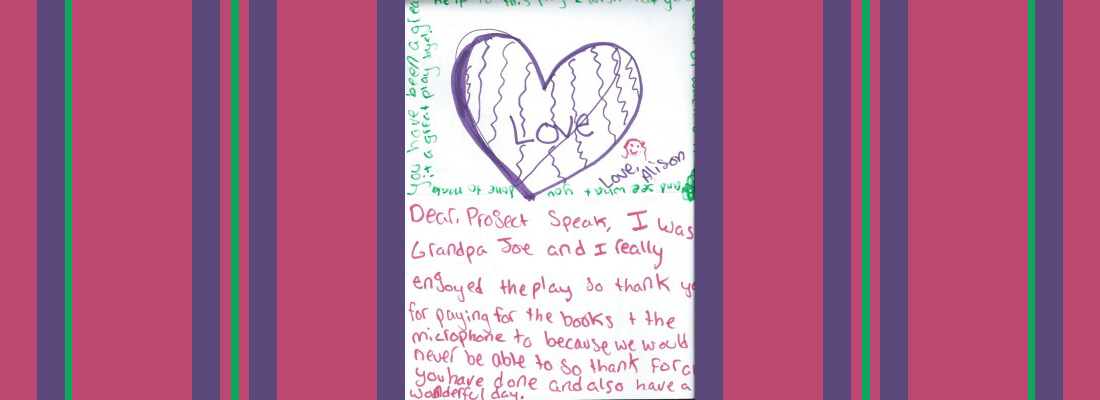 you have been a grea
it a great play bye!!
Love
Love, Alison
Dear, Project Speak, I was
Grandpa Joe and I really
enjoyed the play so thank yo
for paying for the books + the
microphone to because we would
never be able to so thank for a
you have done and also have a
wonderful day.